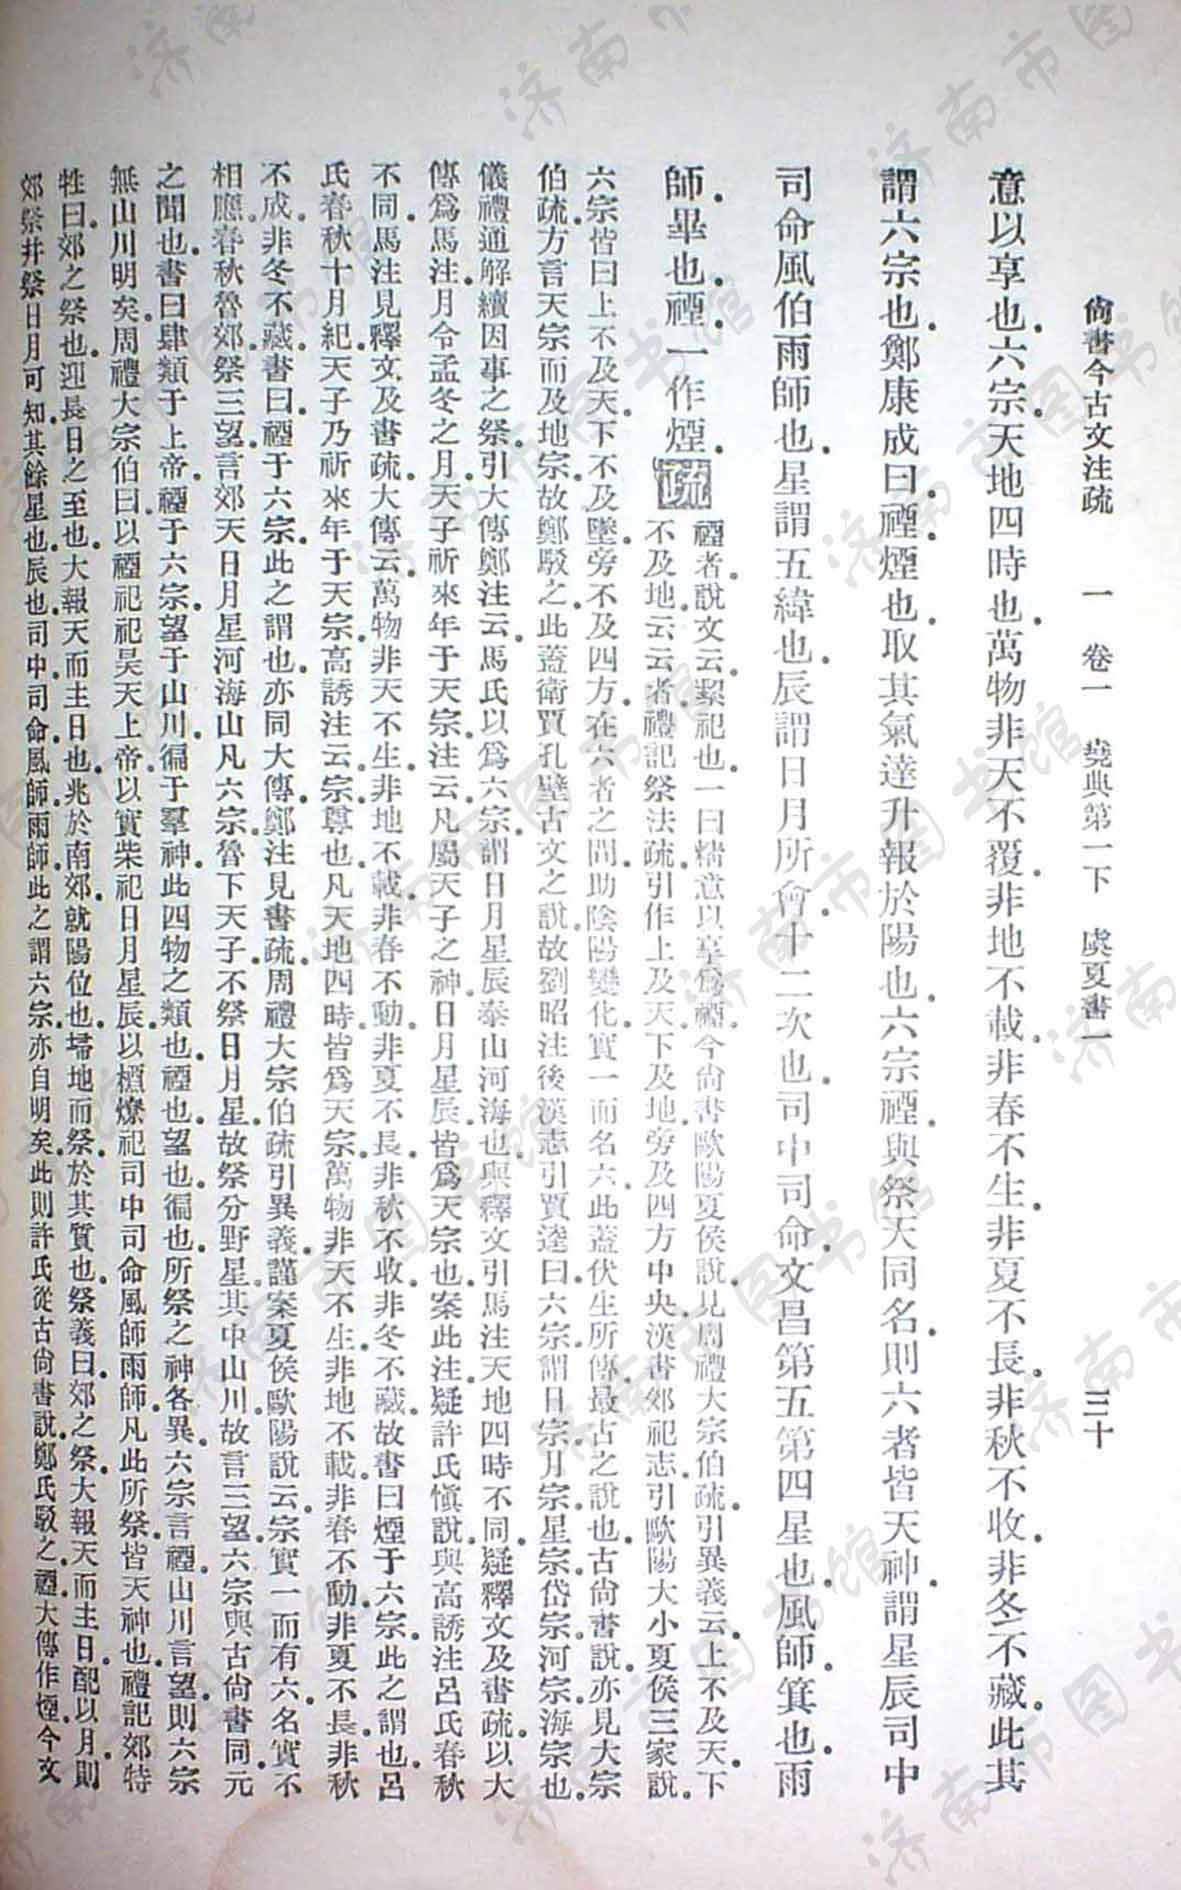 尙書今古文注疏　一　卷一　堯典第一下　虞夏書一　三十
意以享也六宗天地四時也萬物非天不覆非地不載非春不生非夏不長非秋不收非冬不藏此其
謂六宗也鄭康成曰禋煙也取其氣達升報於陽也六宗禋與祭天同名則六者皆天神謂星辰司中
司命風伯雨師也星謂五緯也辰謂日月所會十二次也司中司命文昌第五第四星也風師箕也雨
師畢也禋一作煙疏禋者說文云絜祀也一曰精意以享爲禋今尙書歐陽夏侯說見周禮大宗伯疏引異義云上不及天下
不及地云云者禮記祭法疏引作上及天下及地旁及四方中央漢書郊祀志引歐陽大小夏侯三家說
六宗皆曰上不及天下不及墬旁不及四方在六者之間助陰陽變化實一而名六此蓋伏生所傳最古之說也古尙書說亦見大宗
伯疏方言天宗而及地宗故鄭駁之此蓋衛賈孔壁古文之說故劉昭注後漢志引賈逵曰六宗謂日宗月宗星宗岱宗河宗海宗也
儀禮通解續因事之祭引大傳鄭注云馬氏以爲六宗謂日月星辰泰山河海也與釋文引馬注天地四時不同疑釋文及書疏以大
傳爲馬注月令孟冬之月天子祈來年于天宗注云凡屬天子之神日月星辰皆爲天宗也案此注疑許氏愼說與高誘注呂氏春秋
不同馬注見釋文及書疏大傳云萬物非天不生非地不載非春不動非夏不長非秋不收非冬不藏故書曰煙于六宗此之謂也呂
氏春秋十月紀天子乃祈來年于天宗高誘注云宗尊也凡天地四時皆爲天宗萬物非天不生非地不載非春不動非夏不長非秋
不成非冬不藏書曰禋于六宗此之謂也亦同大傳鄭注見書疏周禮大宗伯疏引異義謹案夏侯歐陽說云宗實一而有六名實不
相應春秋魯郊祭三望言郊天日月星河海山凡六宗魯下天子不祭日月星故祭分野星其中山川故言三望六宗與古尙書同元
之聞也書曰肆類于上帝禋于六宗望于山川徧于羣神此四物之類也禋也望也徧也所祭之神各異六宗言禋山川言望則六宗
無山川明矣周禮大宗伯曰以禋祀祀昊天上帝以實柴祀日月星辰以槱燎祀司中司命風師雨師凡此所祭皆天神也禮記郊特
牲曰郊之祭也迎長日之至也大報天而主日也兆於南郊就陽位也埽地而祭於其質也祭義曰郊之祭大報天而主日配以月則
郊祭并祭日月可知其餘星也辰也司中司命風師雨師此之謂六宗亦自明矣此則許氏從古尙書說鄭氏駁之禋大傳作煙今文